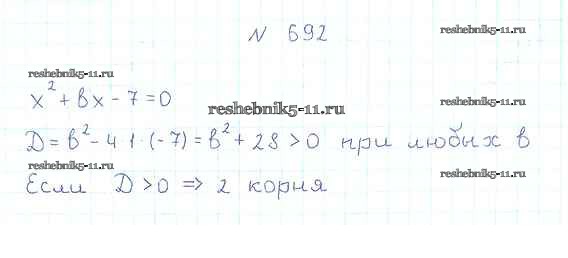 N 692
reshebnik5-11.ru
reshebnik5-11.ru
x² + bx - 7 = 0
reshebnik5-11.ru
reshebnik5-11.ru
D = b² - 4 1 · (-7) = b² + 28 > 0 при любых b
reshebnik5-11.ru
reshebnik5-11.ru
Если D > 0 => 2 корня